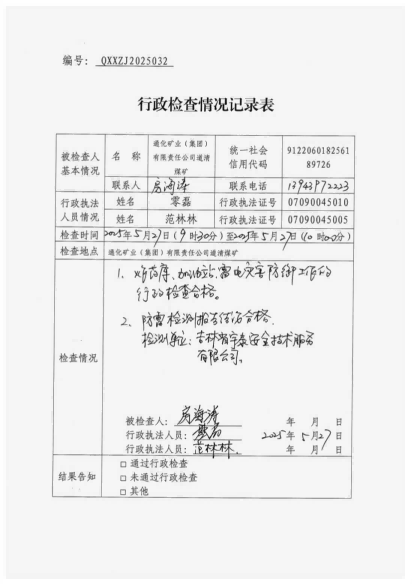 编号: QXXZJ2025032
行政检查情况记录表
被检查人基本情况 名 称 通化矿业（集团）有限责任公司道清煤矿 统一社会信用代码 912206018256189726
联系人 房海涛 联系电话 13943972223
行政执法人员情况 姓名 零磊 行政执法证号 07090045010
姓名 范林林 行政执法证号 07090045005
检查时间 2025年5月27日(9时30分)至2025年5月27日(10时00分)
检查地点 通化矿业（集团）有限责任公司道清煤矿
检查情况
1、炸药库、加油站、雷电灾害防御工作的
行政检查合格。
2、防雷检测报告结论合格.
检测单位: 吉林省宇泰安全技术服务
有限公司。
被检查人: 房海涛 年 月 日
行政执法人员: 2025年5月27日
行政执法人员: 范林林 年 月 日
结果告知 □ 通过行政检查
□ 未通过行政检查
□ 其他